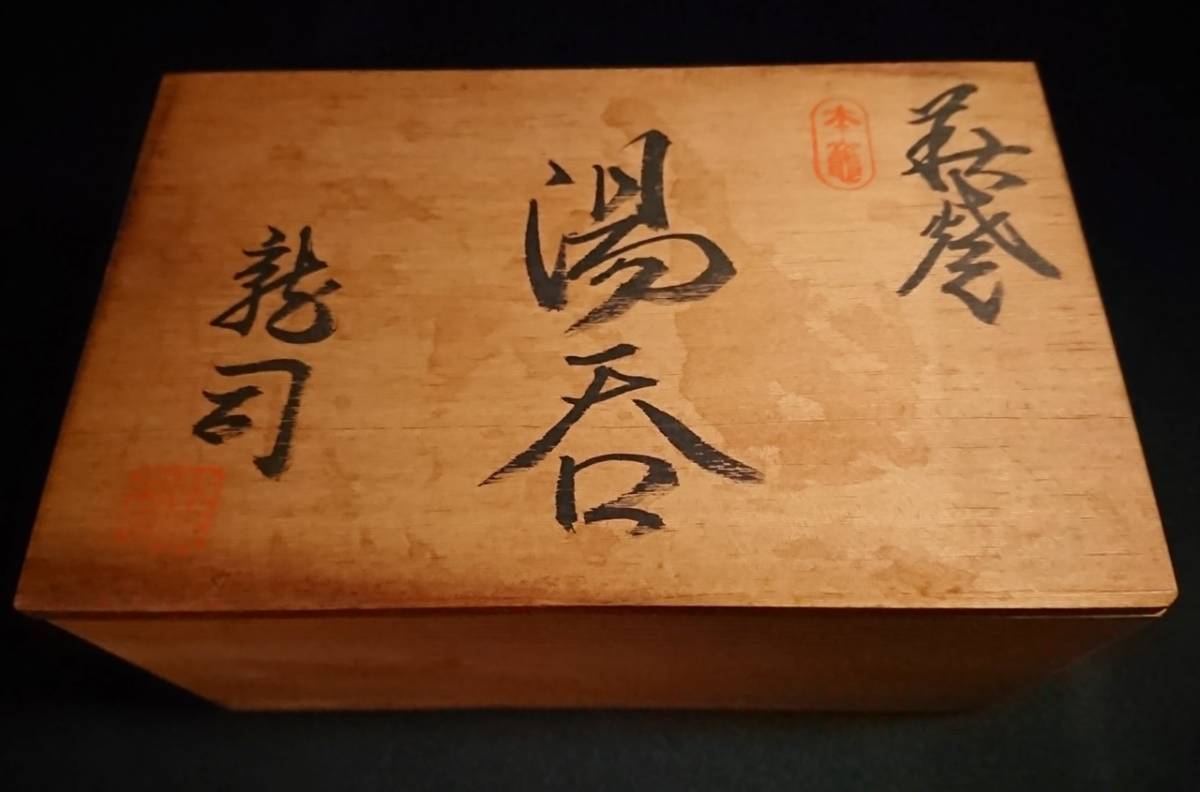 萩焼
本窯
湯呑
龍司